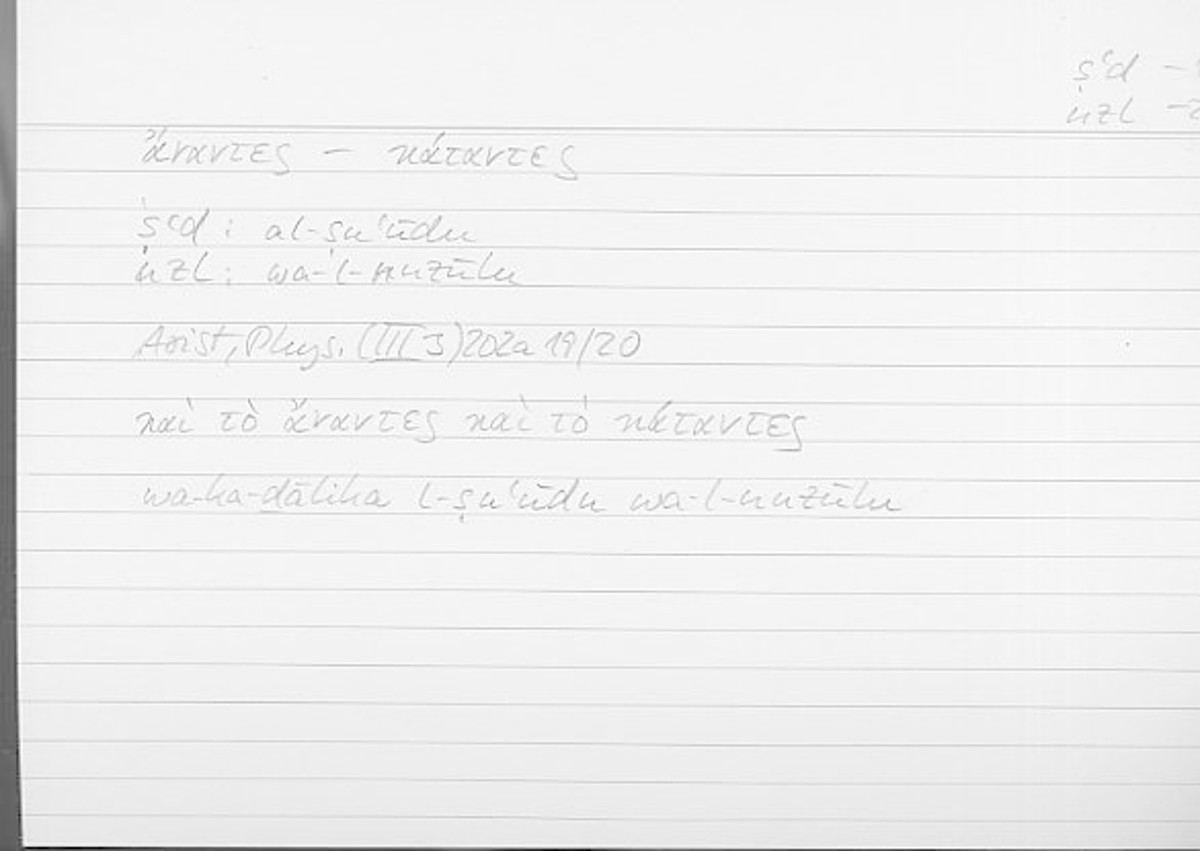 ṣʿd –
nzl –
ἄναντες – κάταντες
ṣʿd : al-ṣuʿūdu
nzl : wa-l-nuzūlu
Arist., Phys. (III 3) 202a 19/20
καὶ τὸ ἄναντες καὶ τὸ κάταντες
wa-ka-ḏālika l-ṣuʿūdu wa-l-nuzūlu